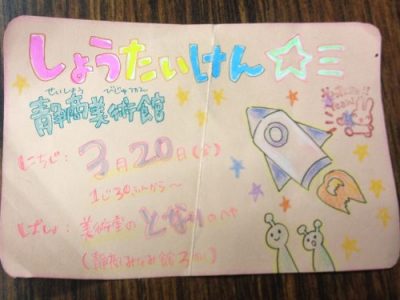 しょうたいけん
せいしょう びじゅつかん
青商美術館
にちじ: 3月20日(金)
1じ30ぷんから〜
ばしょ: 美術室のとなりのへや